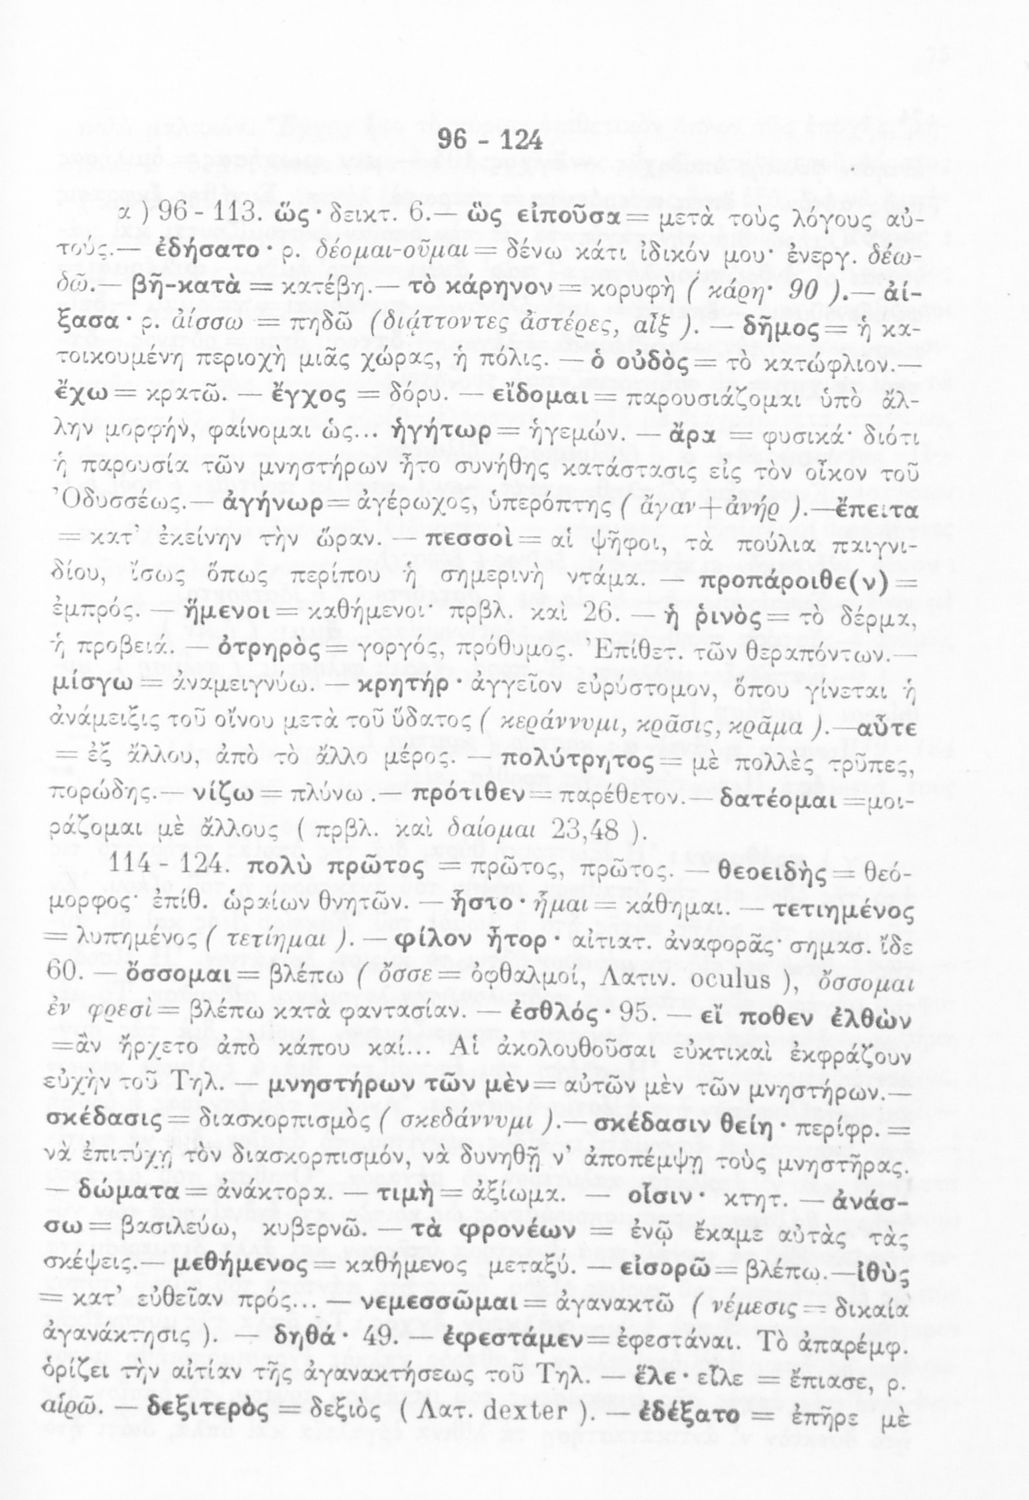 96 - 124
α ) 96 - 113. ὥς · δεικτ. 6.— ὣς εἰποῦσα = μετὰ τοὺς λόγους αὐ-
τούς.— ἐδήσατο · ρ. δέομαι-οῦμαι = δένω κάτι ἰδικόν μου· ἐνεργ. δέω-
δῶ.— βῆ-κατὰ = κατέβη.— τὸ κάρηνον = κορυφὴ ( κάρη· 90 ).— ἀί-
ξασα · ρ. ἀίσσω = πηδῶ (διᾴττοντες ἀστέρες, αἶξ ). — δῆμος = ἡ κα-
τοικουμένη περιοχὴ μιᾶς χώρας, ἡ πόλις. — ὁ οὐδὸς = τὸ κατώφλιον.—
ἔχω = κρατῶ. — ἔγχος = δόρυ. — εἴδομαι = παρουσιάζομαι ὑπὸ ἄλ-
λην μορφήν, φαίνομαι ὡς... ἡγήτωρ = ἡγεμών. — ἄρα = φυσικά· διότι
ἡ παρουσία τῶν μνηστήρων ἦτο συνήθης κατάστασις εἰς τὸν οἶκον τοῦ
Ὀδυσσέως.— ἀγήνωρ = ἀγέρωχος, ὑπερόπτης ( ἄγαν + ἀνήρ ).—ἔπειτα
= κατ' ἐκείνην τὴν ὥραν. — πεσσοὶ = αἱ ψῆφοι, τὰ πούλια παιγνι-
δίου, ἴσως ὅπως περίπου ἡ σημερινὴ ντάμα. — προπάροιθε(ν) =
ἐμπρός. — ἥμενοι = καθήμενοι· πρβλ. καὶ 26. — ἡ ῥινὸς = τὸ δέρμα,
ἡ προβειά. — ὀτρηρὸς = γοργός, πρόθυμος. Ἐπίθετ. τῶν θεραπόντων.—
μίσγω = ἀναμειγνύω. — κρητήρ · ἀγγεῖον εὐρύστομον, ὅπου γίνεται ἡ
ἀνάμειξις τοῦ οἴνου μετὰ τοῦ ὕδατος ( κεράννυμι, κρᾶσις, κρᾶμα ).—αὖτε
= ἐξ ἄλλου, ἀπὸ τὸ ἄλλο μέρος. — πολύτρητος = μὲ πολλὲς τρῦπες,
πορώδης.— νίζω = πλύνω .— πρότιθεν = παρέθετον.— δατέομαι =μοι-
ράζομαι μὲ ἄλλους ( πρβλ. καὶ δαίομαι 23,48 ).
114 - 124. πολὺ πρῶτος = πρῶτος, πρῶτος. — θεοειδὴς = θεό-
μορφος· ἐπίθ. ὡραίων θνητῶν. — ἧστο · ἧμαι = κάθημαι. — τετιημένος
= λυπημένος ( τετίημαι ). — φίλον ἦτορ · αἰτιατ. ἀναφορᾶς· σημασ. ἴδε
60. — ὄσσομαι = βλέπω ( ὄσσε = ὀφθαλμοί, Λατιν. oculus ), ὄσσομαι
ἐν φρεσὶ = βλέπω κατὰ φαντασίαν. — ἐσθλός · 95. — εἴ ποθεν ἐλθὼν
=ἂν ἤρχετο ἀπὸ κάπου καί... Αἱ ἀκολουθοῦσαι εὐκτικαὶ ἐκφράζουν
εὐχὴν τοῦ Τηλ. — μνηστήρων τῶν μὲν = αὐτῶν μὲν τῶν μνηστήρων.—
σκέδασις = διασκορπισμὸς ( σκεδάννυμι ).— σκέδασιν θείη · περίφρ. =
νὰ ἐπιτύχῃ τὸν διασκορπισμόν, νὰ δυνηθῇ ν' ἀποπέμψῃ τοὺς μνηστῆρας.
— δώματα = ἀνάκτορα. — τιμὴ = ἀξίωμα. — οἷσιν · κτητ. — ἀνάσ-
σω = βασιλεύω, κυβερνῶ. — τὰ φρονέων = ἐνῷ ἔκαμε αὐτὰς τὰς
σκέψεις.— μεθήμενος = καθήμενος μεταξύ. — εἰσορῶ = βλέπω.—ἰθὺς
= κατ' εὐθεῖαν πρός... — νεμεσσῶμαι = ἀγανακτῶ ( νέμεσις = δικαία
ἀγανάκτησις ). — δηθά · 49. — ἐφεστάμεν = ἐφεστάναι. Τὸ ἀπαρέμφ.
ὁρίζει τὴν αἰτίαν τῆς ἀγανακτήσεως τοῦ Τηλ. — ἕλε · εἷλε = ἔπιασε, ρ.
αἱρῶ. — δεξιτερὸς = δεξιὸς ( Λατ. dexter ). — ἐδέξατο = ἐπῆρε μὲ